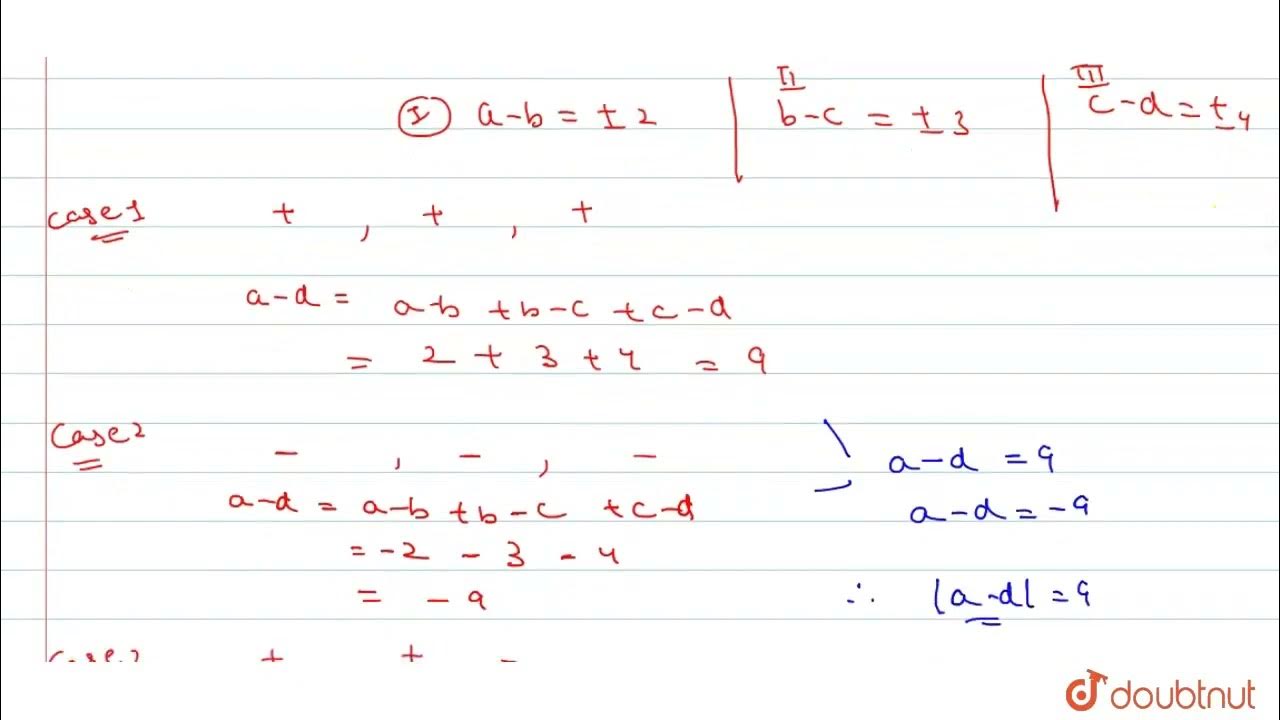 I a-b = ± 2 | II b-c = ± 3 | III c-d = ± 4
Case 1 + , + , +
a-d = a-b + b-c + c-d
= 2 + 3 + 4 = 9
Case 2 - , - , -
a-d = a-b + b-c + c-d
= -2 - 3 - 4
= - 9
a-d = 9
a-d = -9
∴ |a-d| = 9
+ + -
doubtnut